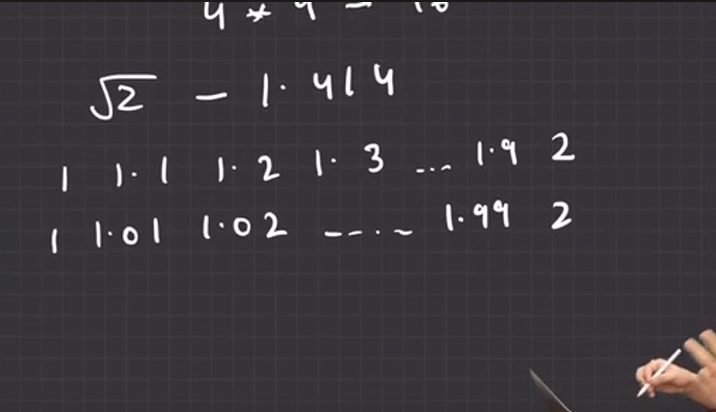 4 * 4 = 16
√2 - 1.414
1 1.1 1.2 1.3 ... 1.9 2
1 1.01 1.02 ----- 1.99 2